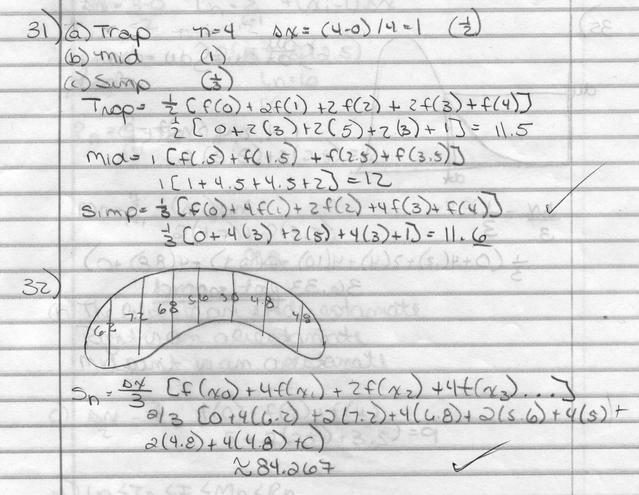 31) (a) Trap n=4 Δx = (4-0)/4 = 1 (1/2)
(b) mid (1)
(c) Simp (1/3)
Trap = 1/2 [f(0) + 2f(1) + 2f(2) + 2f(3) + f(4)]
1/2 [0 + 2(3) + 2(5) + 2(3) + 1] = 11.5
mid = 1 [f(.5) + f(1.5) + f(2.5) + f(3.5)]
1[1 + 4.5 + 4.5 + 2] = 12
Simp = 1/3 [f(0) + 4f(1) + 2f(2) + 4f(3) + f(4)]
1/3 [0 + 4(3) + 2(5) + 4(3) + 1] = 11.6
32)
6.2 7.2 6.8 5.6 5.0 4.8 4.8
Sn = Δx/3 [f(x0) + 4f(x1) + 2f(x2) + 4f(x3) ...]
2/3 [0 + 4(6.2) + 2(7.2) + 4(6.8) + 2(5.6) + 4(5) +
2(4.8) + 4(4.8) + 0)
≈ 84.267